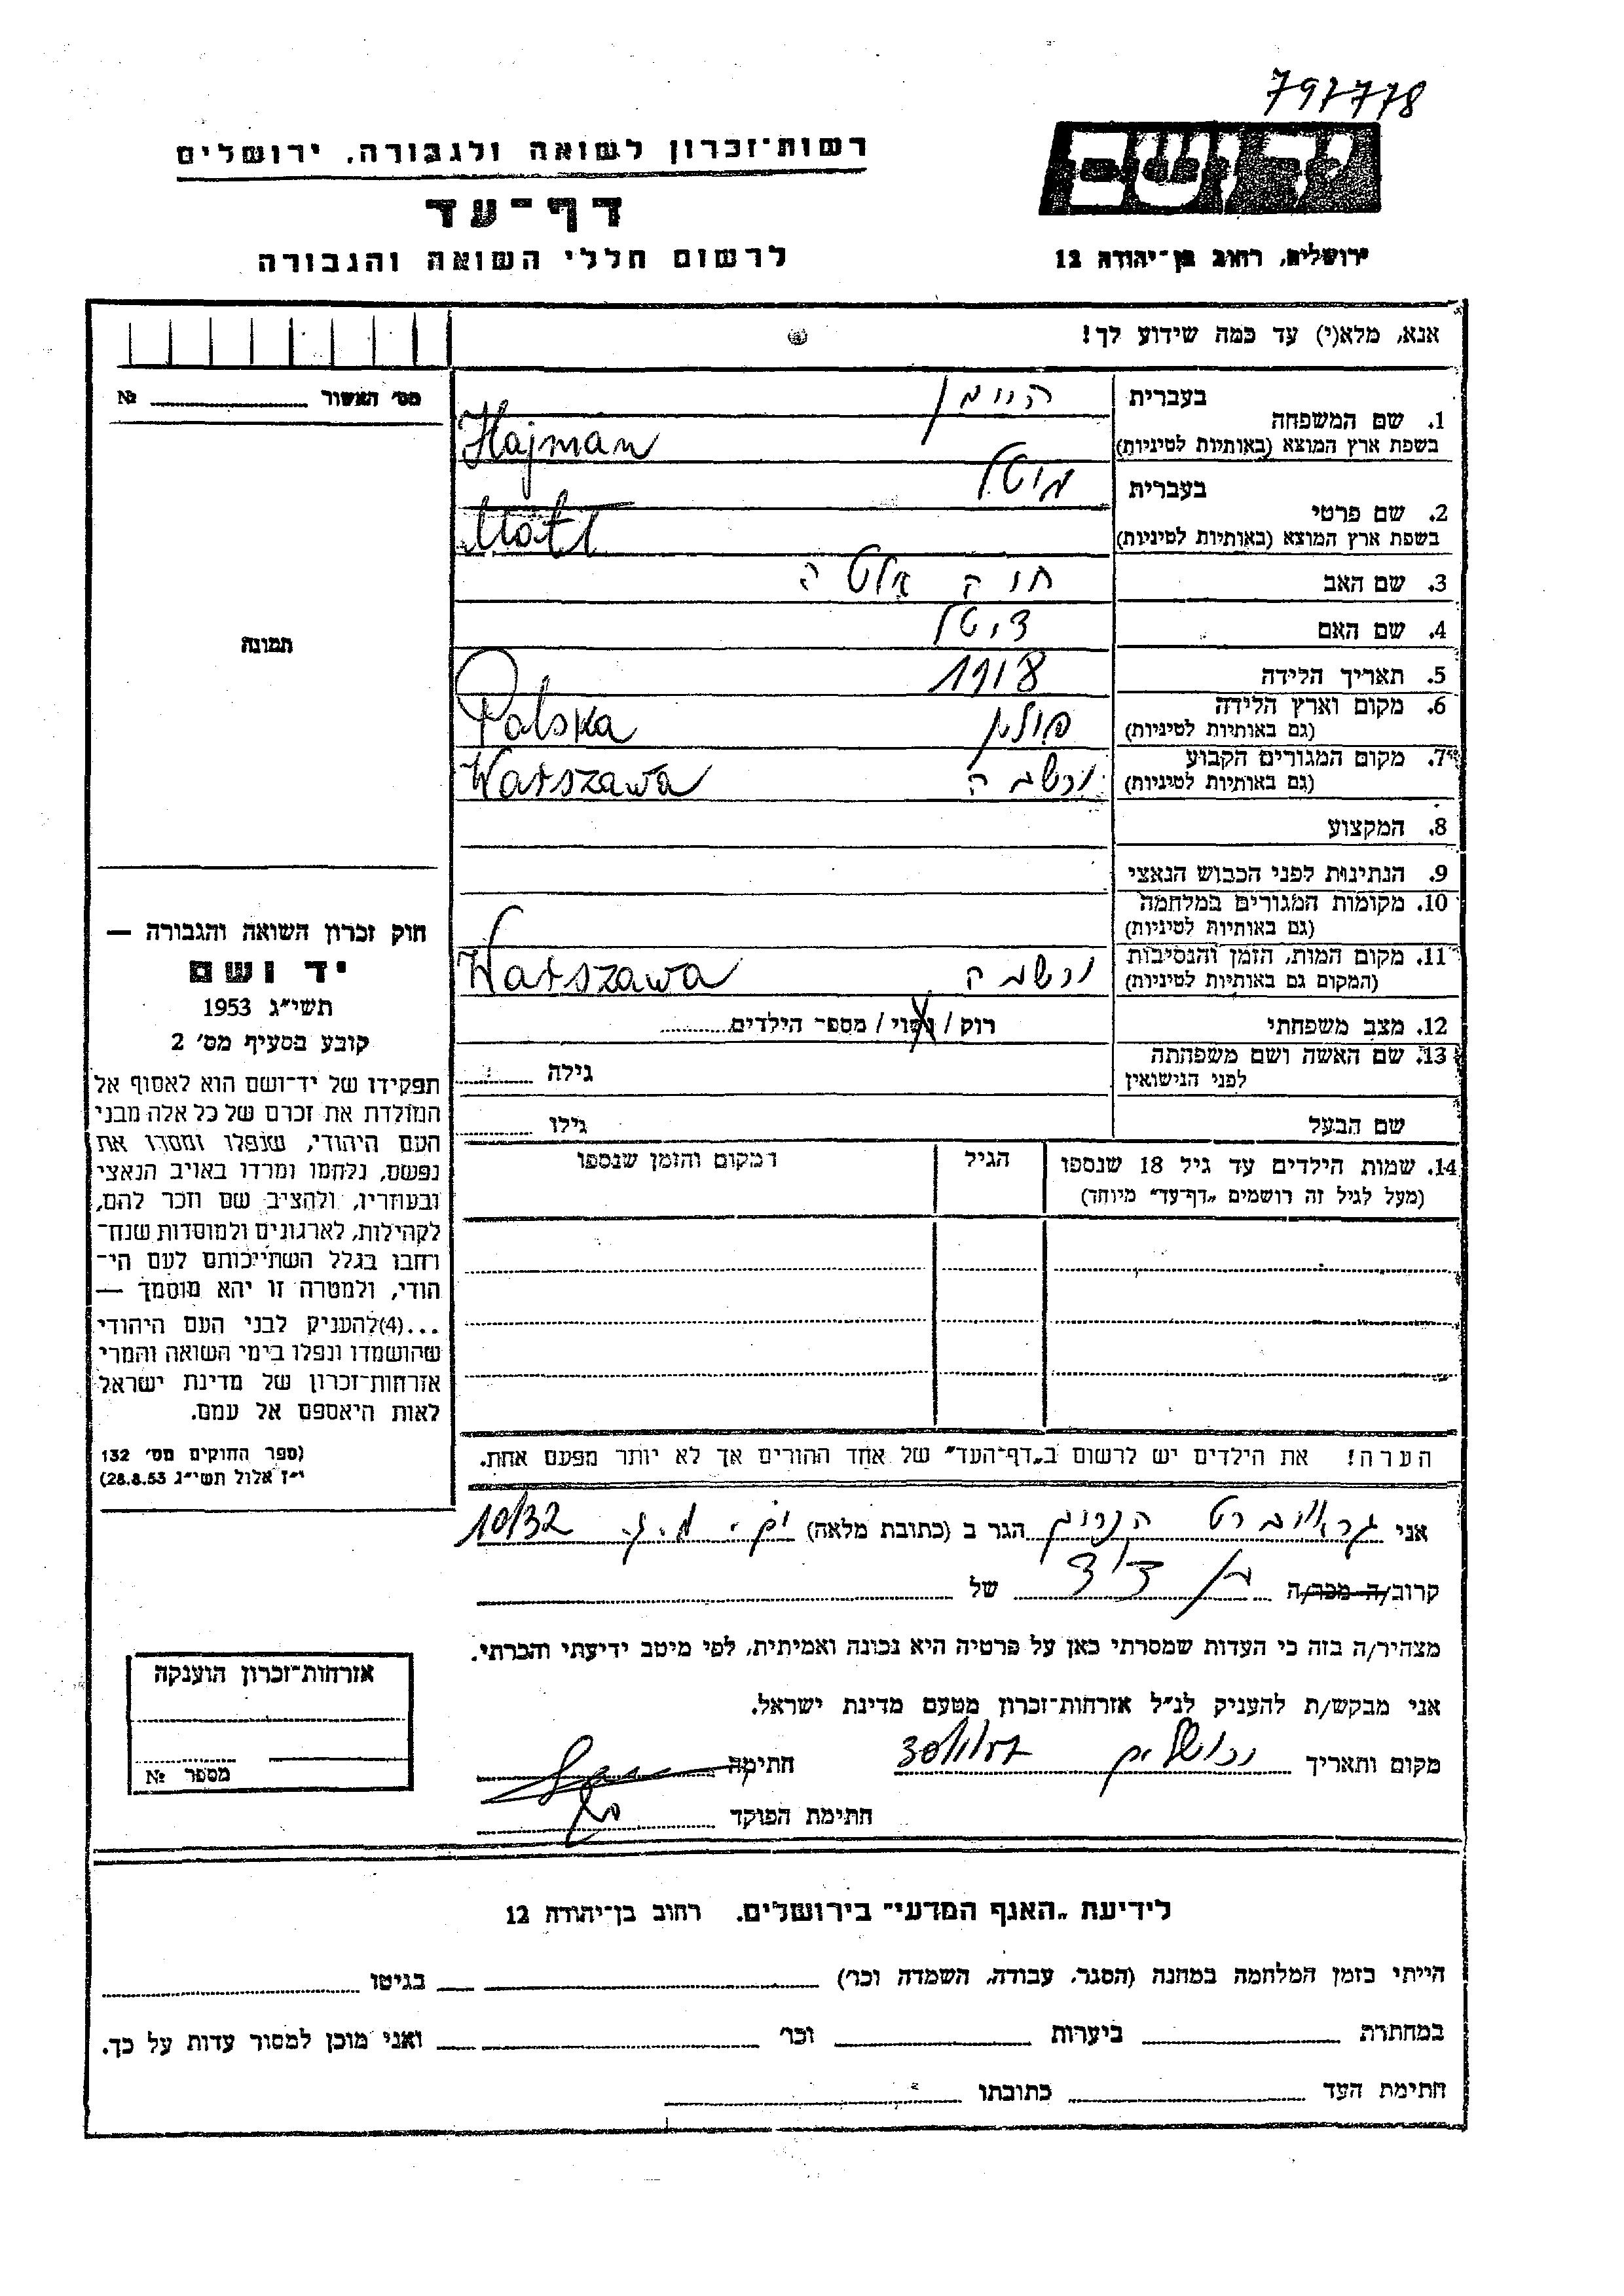 797778
רשות־זכרון לשואה ולגבורה, ירושלים
דף־עד
לרשום חללי השואה והגבורה
יד ושם
ירושלים, רחוב בן־יהודה 12
אנא, מלא(י) עד כמה שידוע לך!
מס' האשור № 
תמונה
חוק זכרון השואה והגבורה —
יד ושם
תשי״ג 1953
קובע בסעיף מס' 2
תפקידו של יד־ושם הוא לאסוף אל
המולדת את זכרם של כל אלה מבני
העם היהודי, שנפלו ומסרו את
נפשם, נלחמו ומרדו באויב הנאצי
ובעוזריו, ולהציב שם וזכר להם,
לקהילות, לארגונים ולמוסדות שנח־
רחבו בגלל השתייכותם לעם הי־
הודי, ולמטרה זו יהא מוסמך —
...(4)להעניק לבני העם היהודי
שהושמדו ונפלו בימי השואה והמרי
אזרחות־זכרון של מדינת ישראל
לאות היאספם אל עמם.
(ספר החוקים מס' 132
י״ז אלול תשי״ג 28.8.53)
בעברית היימן
1. שם המשפחה
בשפת ארץ המוצא (באותיות לטיניות) Hajman
בעברית מוטל
2. שם פרטי
בשפת ארץ המוצא (באותיות לטיניות) Motl
3. שם האב
4. שם האם
5. תאריך הלידה 1918
6. מקום וארץ הלידה פולין Polska
(גם באותיות לטיניות)
7. מקום המגורים הקבוע ורשבה Warszawa
(גם באותיות לטיניות)
8. המקצוע
9. הנתינות לפני הכבוש הנאצי
10. מקומות המגורים במלחמה
(גם באותיות לטיניות)
11. מקום המות, הזמן והנסיבות ורשבה Warszawa
(המקום גם באותיות לטיניות)
12. מצב משפחתי רוק / נשוי / מספר הילדים
13. שם האשה ושם משפחתה גילה
לפני הנישואין
שם הבעל גילו
14. שמות הילדים עד גיל 18 שנספו הגיל המקום והזמן שנספו
(מעל לגיל זה רושמים „דף־עד״ מיוחד)
הערה! את הילדים יש לרשום ב„דף־העד״ של אחד ההורים אך לא יותר מפעם אחת.
אני הגר ב (כתובת מלאה) 10/32
קרוב/ה מכר/ה בן דוד של
מצהיר/ה בזה כי העדות שמסרתי כאן על פרטיה היא נכונה ואמיתית, לפי מיטב ידיעתי והכרתי.
אני מבקש/ת להעניק לנ״ל אזרחות־זכרון מטעם מדינת ישראל.
מקום ותאריך ירושלים חתימה
חתימת הפוקד
אזרחות־זכרון הוענקה
מספר №
לידיעת „האגף המדעי״ בירושלים. רחוב בן־יהודה 12
הייתי בזמן המלחמה במחנה (הסגר, עבודה, השמדה וכו') בגיטו
במחתרת ביערות וכו' ואני מוכן למסור עדות על כך.
חתימת העד כתובתו